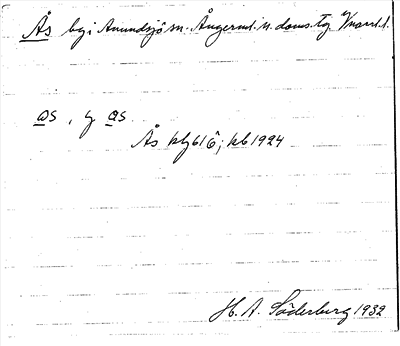 Ås by i Anundsjö sn. Ångerml. n. doms. tg V/norrl. l.
as, y as
Ås kfg 616; kb 1924
H. A. Söderburg 1932